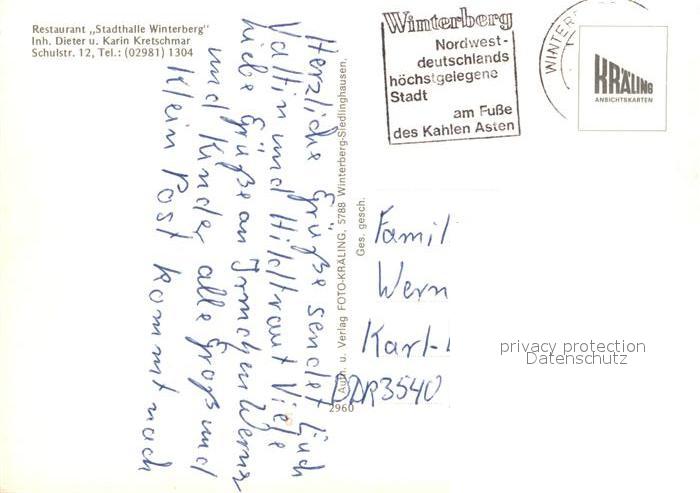 Restaurant „Stadthalle Winterberg"
Inh. Dieter u. Karin Kretschmar
Schulstr. 12, Tel.: (02981) 1304
Winterberg
Nordwest-
deutschlands
höchstgelegene
Stadt
am Fuße
des Kahlen Asten
WINTERB
KRÄLING
ANSICHTSKARTEN
Herzliche Grüße sendet Euch
Valtin und Hildtraut Viele
liebe Grüße an Irmchen Werner
und Kinder alle Groß und
Klein Post kommt nach
Auth. u. Verlag FOTO-KRÄLING, 5788 Winterberg-Siedlinghausen,
Ges. gesch.
2960
Famil
Wern
Karl-
DDR3540
privacy protection
Datenschutz